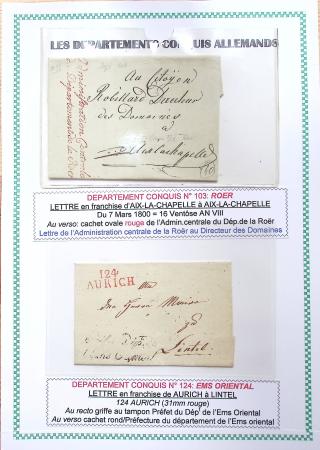 LES DEPARTEMENTS CONQUIS ALLEMANDS
Administration Centrale
Au Citoyen
Robillard Directeur
des Domaines
à
Aixlachapelle
DEPARTEMENT CONQUIS N° 103: ROER
LETTRE en franchise d'AIX-LA-CHAPELLE à AIX-LA-CHAPELLE
Du 7 Mars 1800 = 16 Ventôse AN VIII
Au verso: cachet ovale rouge de l'Admin.centrale du Dép.de la Roër
Lettre de l'Administration centrale de la Roër au Directeur des Domaines
124
AURICH
Lintel
DEPARTEMENT CONQUIS N° 124: EMS ORIENTAL
LETTRE en franchise de AURICH à LINTEL
124 AURICH (31mm rouge)
Au recto griffe au tampon Préfet du Dépt de l'Ems Oriental
Au verso cachet rond/Préfecture du département de l'Ems oriental